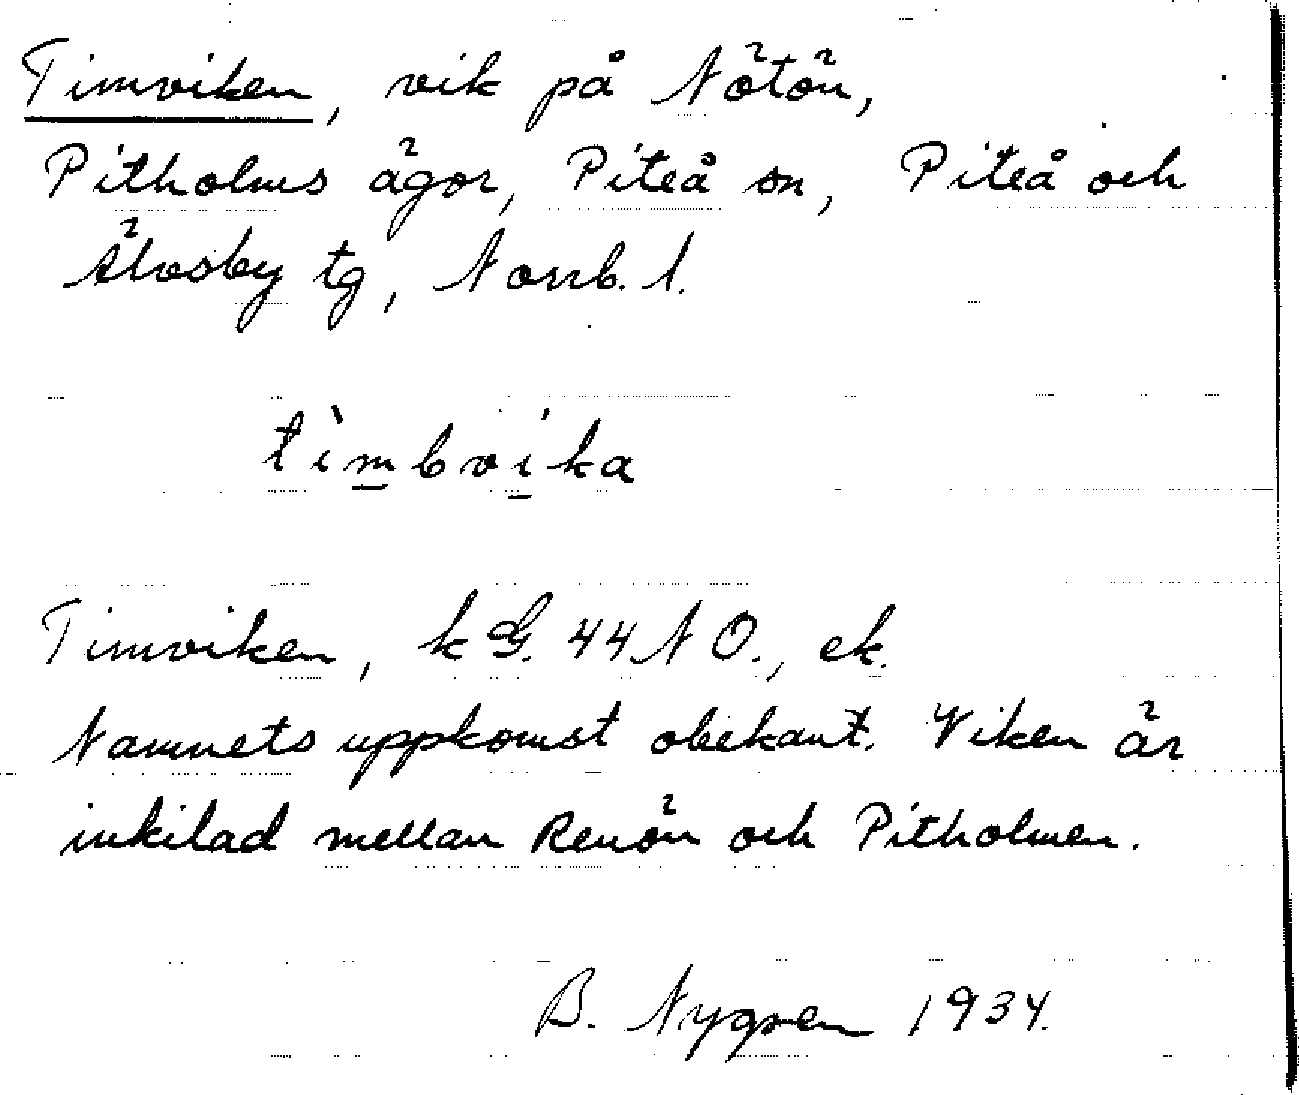 Timviken, vik på Nötön,
Pitholms ägor, Piteå sn, Piteå och
Älvsby tg, Norrb. l.
tìmbvíka
Timviken, k G. 44 N O., ek.
Namnets uppkomst obekant. Viken är
inkilad mellan Renön och Pitholmen.
B. Nygren 1934.